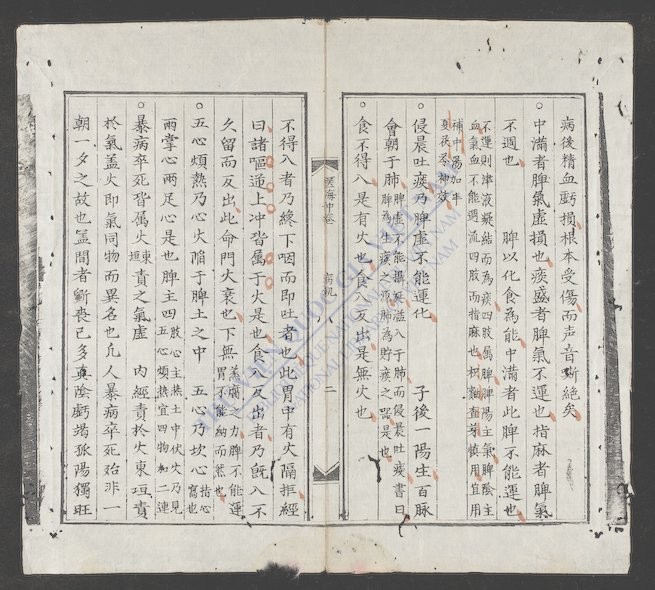 病後精血虧損根本受傷而声音嘶絶矣
中滿者脾氣虛損也痰盛者脾氣不運也指麻者脾氣
不週也 脾以化食為能中滿者此脾不能運也
不運則津液凝結而為痰四肢属脾脾陽主氣脾陰主
血氣血不能週流四肢而指麻也枳壳査芩慎用宜用
補中湯加半
夏茯苓神效
侵晨吐痰乃脾虛不能運化 子後一陽生百脉
會朝于肺
脾虛不能攝涎滋入于肺而侵晨吐痰書曰
脾為生痰之源肺為貯痰之器是也
食不得入是有火也食入反出是無火也
醫海 卷
八 二
不得入者乃終下咽而即吐者也此胃中有火隔拒經
曰諸嘔逆上冲皆属于火是也食入反出者乃既入不
久留而反出此命門火衰也下無
蒸腐之力脾不能運
胃不能納而然也
五心煩熱乃心火陷于脾土之中 五心乃坎心
指心
窩也
兩掌心兩足心是也脾主四
肢心主热土中伏火乃見
五心煩熱宜四物加二連
暴病卒死皆属火東垣責之氣虛 内經責於火東垣責
於氣盖火即氣同物而異名也凡人暴病卒死殆非一
朝一夕之故也盖間者斵丧已多真陰虧竭孤陽獨旺
THƯ VIỆN QUỐC GIA VIỆT NAM
BIBLIOTHÈQUE NATIONALE DU VIETNAM
NATIONAL LIBRARY OF VIETNAM